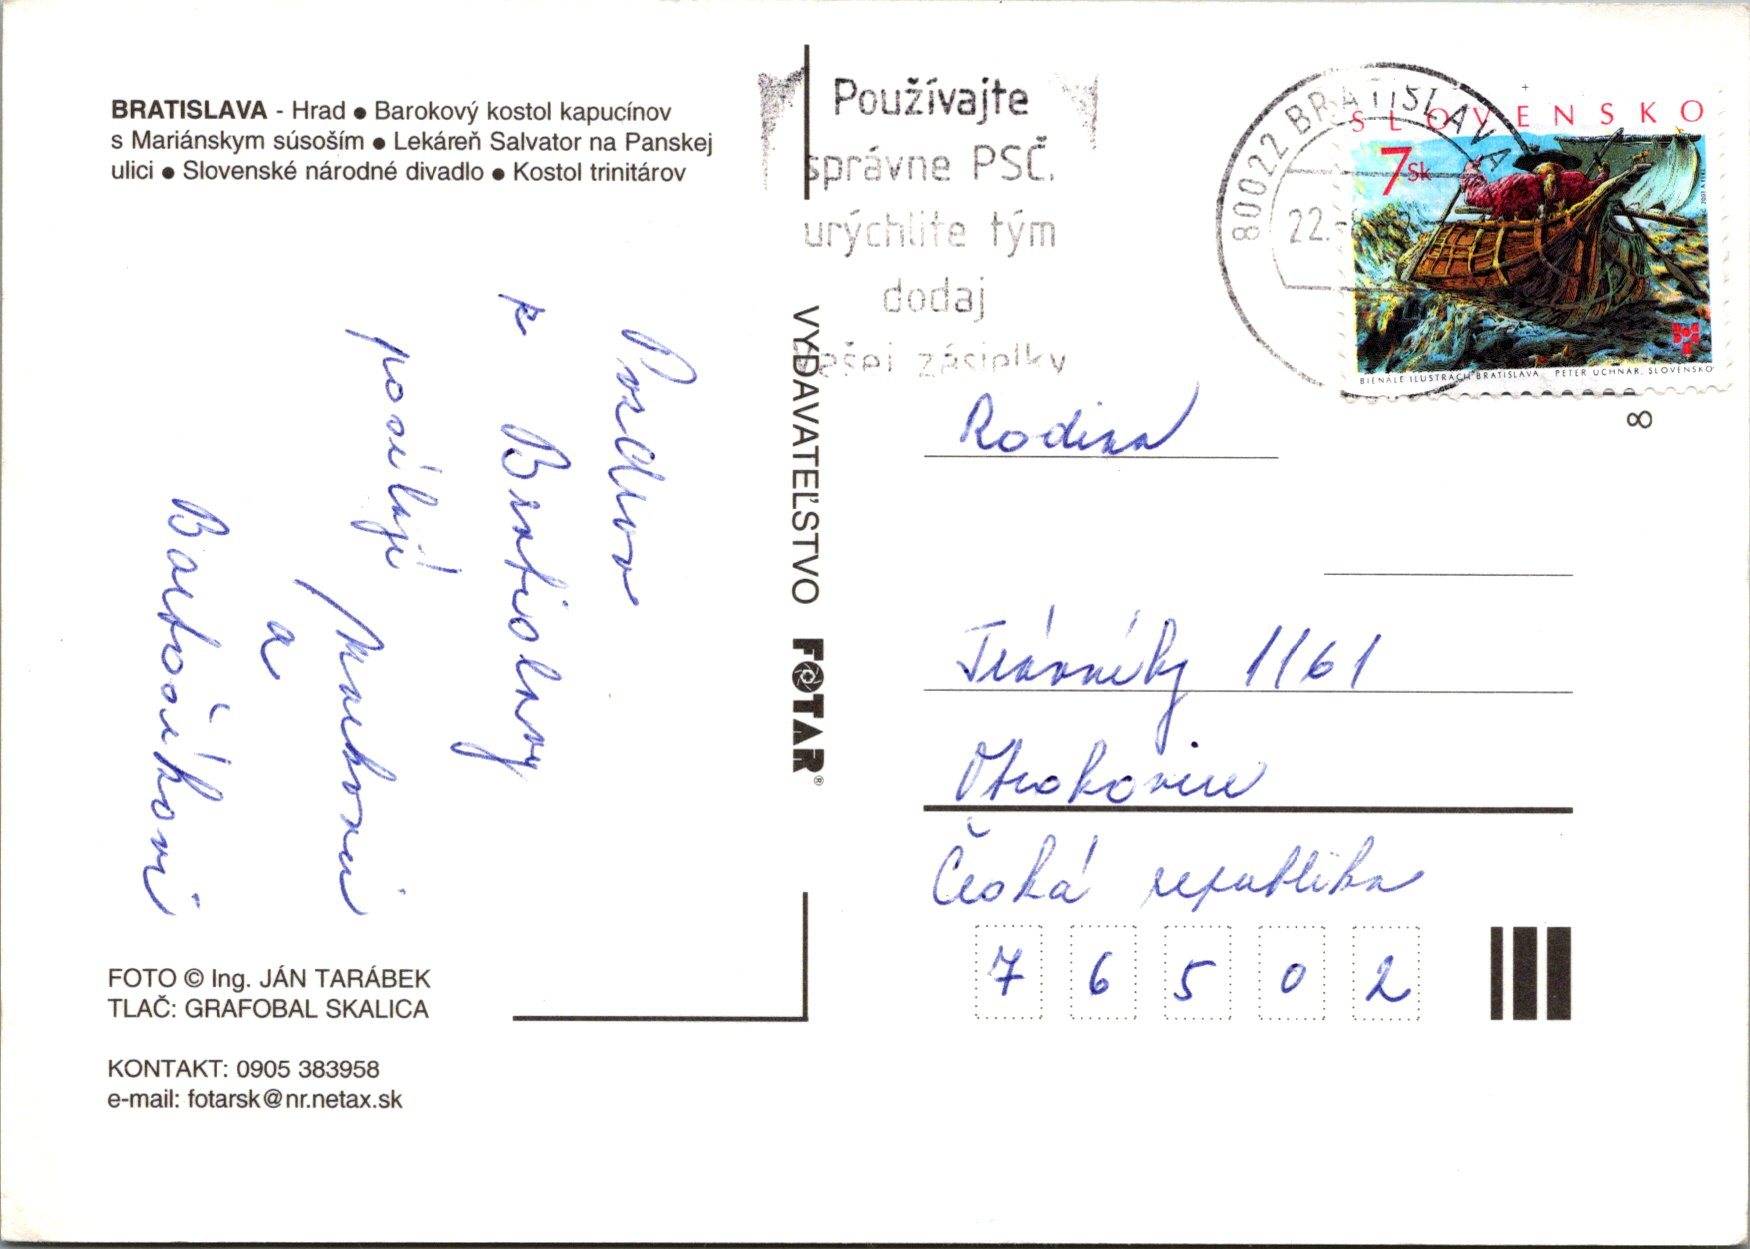 BRATISLAVA - Hrad ● Barokový kostol kapucínov
s Mariánskym súsoším ● Lekáreň Salvator na Panskej
ulici ● Slovenské národné divadlo ● Kostol trinitárov
Pozdrav
z Bratislavy
posílají
Markovi
a
Bartošíkovi
FOTO © Ing. JÁN TARÁBEK
TLAČ: GRAFOBAL SKALICA
KONTAKT: 0905 383958
e-mail: fotarsk@nr.netax.sk
VYDAVATEĽSTVO FOTAR®
Používajte
správne PSČ.
urýchlite tým
dodaj
zásielky
80022 BRATISLAVA
22.
SLOVENSKO
7 Sk
BIENÁLE ILUSTRÁCIÍ BRATISLAVA PETER UCHNÁR, SLOVENSKO
Rodina
Trávníky 1161
Otrokovice
Česká republika
7 6 5 0 2